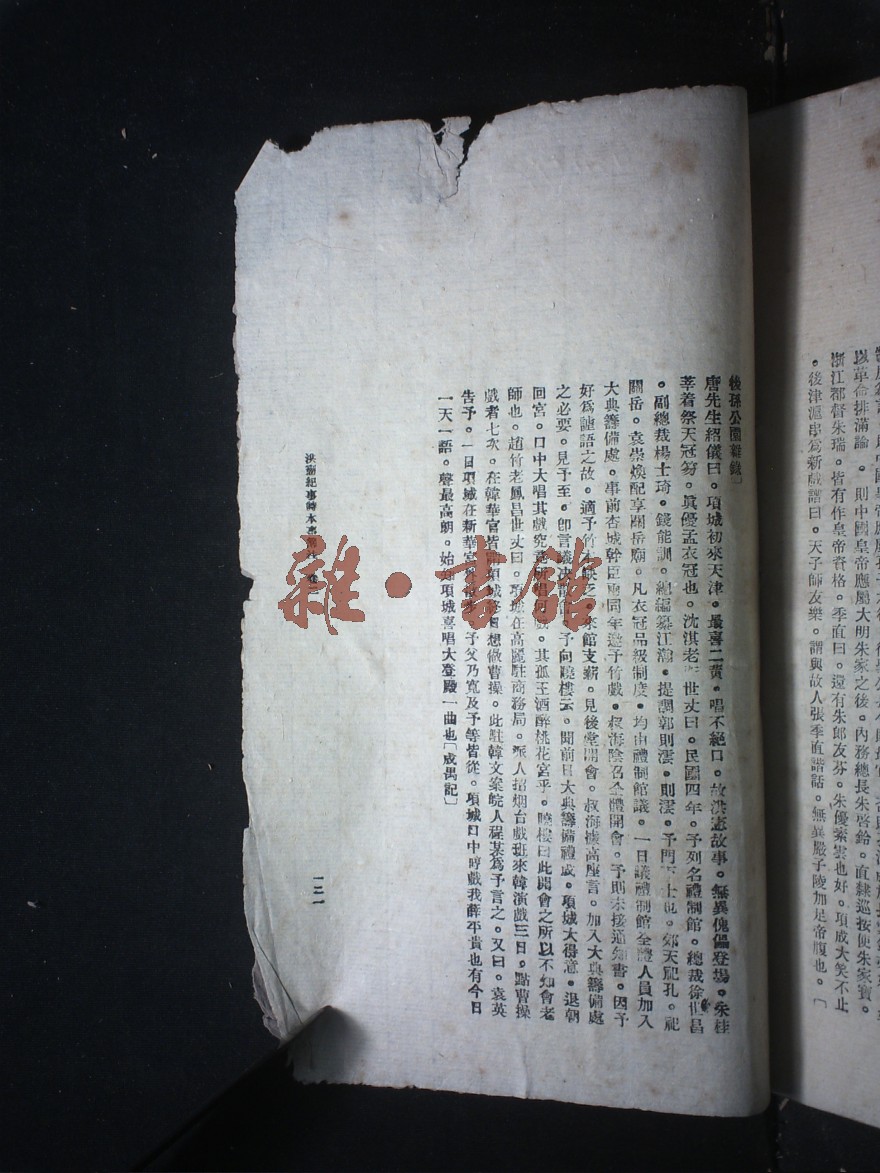 制度
以革命排滿論。則中國皇帝應屬大明朱家之後。內務總長朱啓鈐。直隸巡按使朱家寶。
浙江都督朱瑞。皆有作皇帝資格。季直曰。還有朱郎友芬。朱優素雲也好。項成大笑不止
。後津滬串爲新戲譜曰。天子師友樂。謂與故人張季直諧話。無異嚴子陵加足帝腹也。〔
後孫公園雜錄〕
唐先生紹儀曰。項城初來天津。最喜二黃。唱不絕口。故洪憲故事。無異傀儡登場。朱桂
莘着祭天冠笏。眞優孟衣冠也。沈淇老 世丈曰。民國四年。予列名禮制館。總裁徐世昌
。副總裁楊士琦。錢能訓。總編纂江瀚。提調郭則澐。則澐。予門下士也。郊天配孔。祀
關岳。袁崇煥配享關岳廟。凡衣冠品級制度。均由禮制館議。一日議禮制館全體人員加入
大典籌備處。事前杏城幹臣兩同年邀予竹戲。叔海陰召全體開會。予則未接通知書。因予
好爲謔語之故。適予竹 缺乏。來館支薪。見後堂開會。叔海據高座言。加入大典籌備處
之必要。見予至。卽言議決散 予向曉樓云。聞前日大典籌備禮成。項城大得意。退朝
回宮。口中大唱其戲究竟所唱何戲。其孤王酒醉桃花宮乎。曉樓曰此開會之所以不知會老
師也。趙竹老鳳昌世丈曰。項城在高麗駐商務局。派人招烟台戲班來韓演戲三日。點曹操
戲者七次。在韓華官皆 項城 想做曹操。此駐韓文案皖人程某爲予言之。又曰。袁英
告予。一日項城在新華宮 予父乃寬及予等皆從。項城口中哼戲我薛平貴也有今日
一天一語。聲最高朗。始知項城喜唱大登殿一曲也〔成禺記〕
洪憲紀事詩本事 卷
一二一
雜·書館